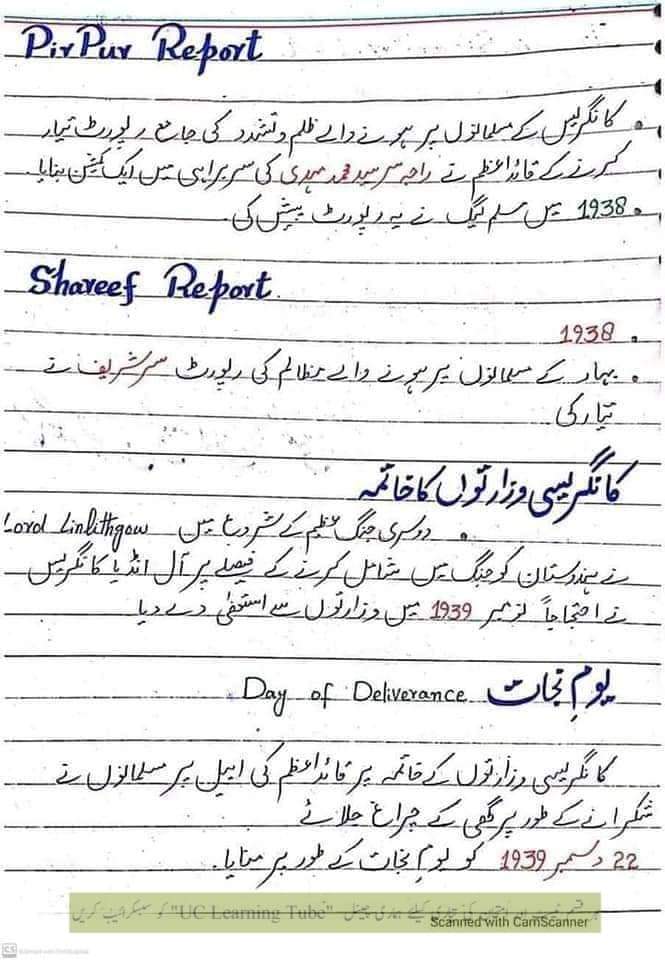 PirPur Report
• کانگریس کے مسلمانوں پر ہونے والے ظلم و تشدد کی جامع رپورٹ تیار
کرنے کے قائداعظم نے راجہ سر سید محمد مہدی کی سربراہی میں ایک کمیشن بنایا۔
• 1938 میں مسلم لیگ نے یہ رپورٹ پیش کی۔
Shareef Report
• 1938
• بہار کے مسلمانوں پر ہونے والے مظالم کی رپورٹ سر شریف نے
تیار کی
کانگریسی وزارتوں کا خاتمہ
• دوسری جنگ عظیم کے شروع میں Lord Linlithgow
نے ہندوستان کو جنگ میں شامل کرنے کے فیصلے پر آل انڈیا کانگریس
نے احتجاجاً نومبر 1939 میں وزارتوں سے استعفیٰ دے دیا
یومِ نجات Day of Deliverance
کانگریسی وزارتوں کے خاتمہ پر قائداعظم کی اپیل پر مسلمانوں نے
شکرانے کے طور پر گھی کے چراغ جلائے
22 دسمبر 1939 کو یومِ نجات کے طور پر منایا۔
کیلئے ہماری چینل "UC Learning Tube" کو سبسکرائب کریں
Scanned with CamScanner
CS Scanned with CamScanner